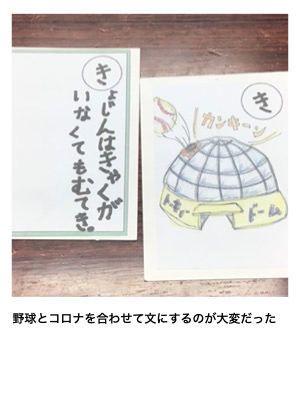 き
ょじんはきゃくが
いなくてもむてき。
き
カンキーン
トーキョー
ドーム
野球とコロナを合わせて文にするのが大変だった